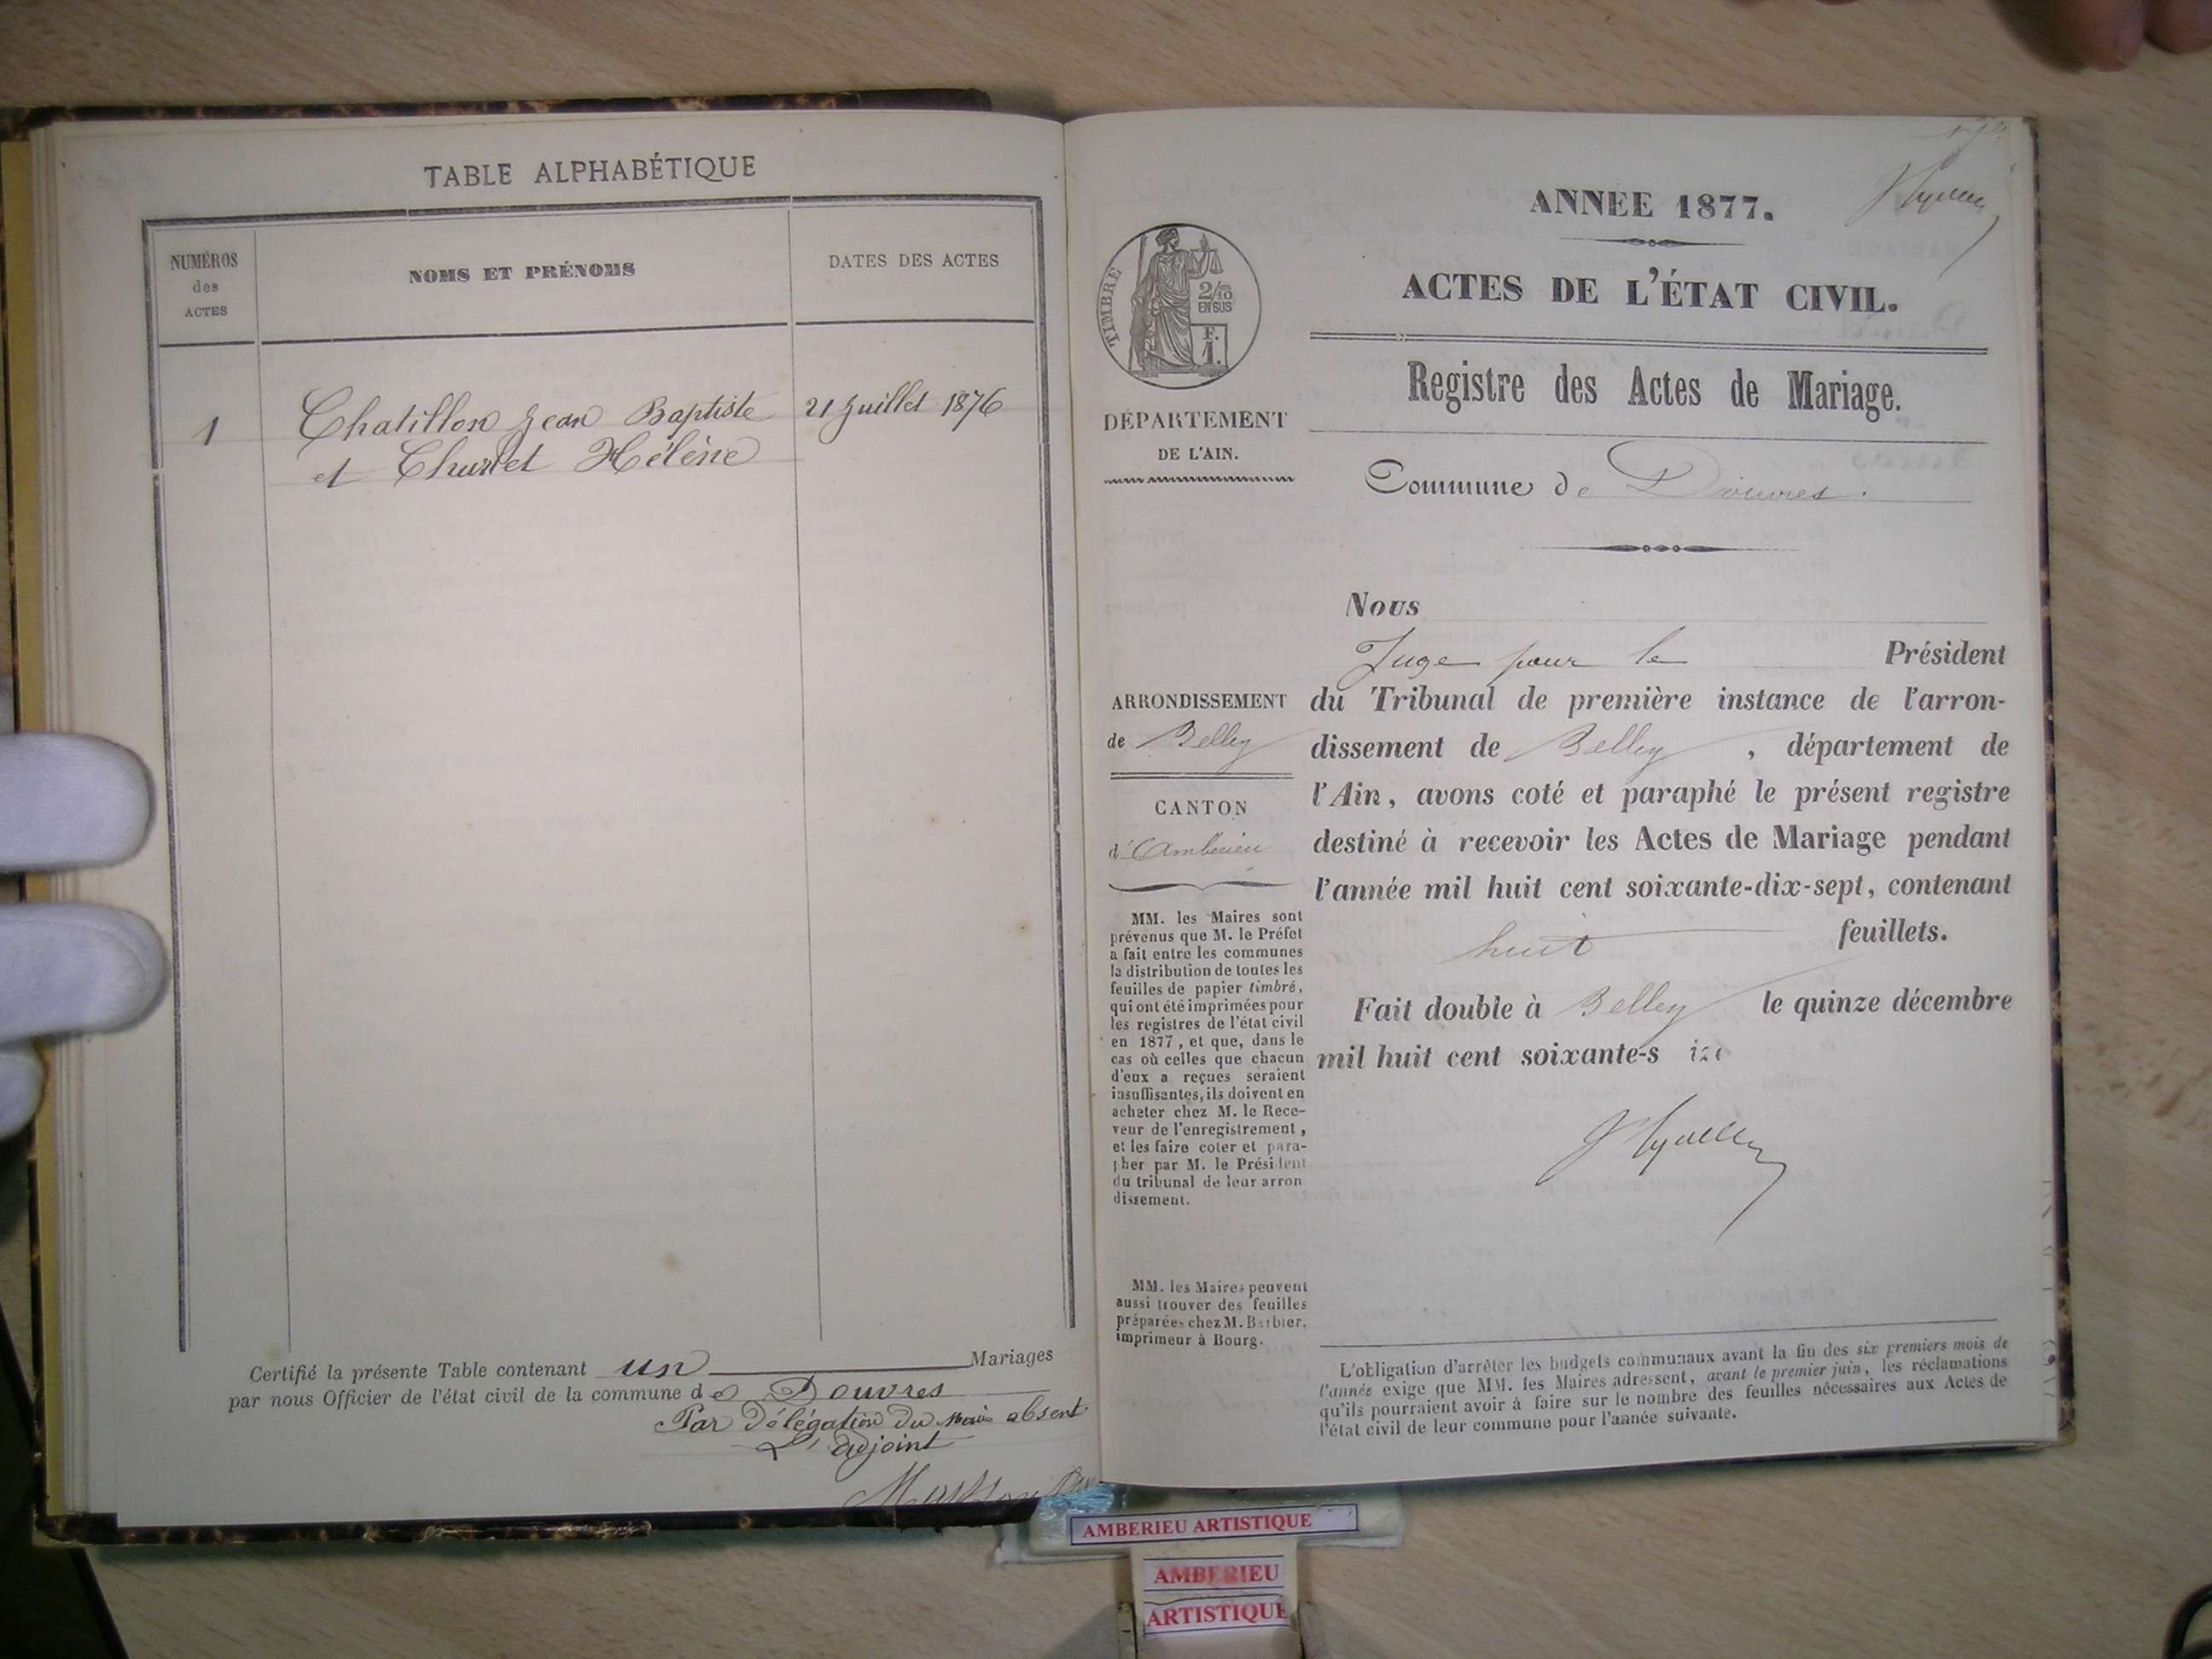 TABLE ALPHABÉTIQUE
NUMÉROS
des
ACTES
NOMS ET PRÉNOMS
DATES DES ACTES
1
Chatillon Jean Baptiste
21 Juillet 1876
et Hélène
Certifié la présente Table contenant un Mariages
par nous Officier de l'état civil de la commune de Douvres
Par Délégation du Maire absent
L'adjoint
ANNÉE 1877.
ACTES DE L'ÉTAT CIVIL.
Registre des Actes de Mariage.
TIMBRE
2/10
EN SUS
F.
1.
DÉPARTEMENT
DE L'AIN.
Commune de Douvres.
Nous
Juge pour le Président
ARRONDISSEMENT
de Belley
du Tribunal de première instance de l'arron-
dissement de Belley, département de
l'Ain, avons coté et paraphé le présent registre
destiné à recevoir les Actes de Mariage pendant
l'année mil huit cent soixante-dix-sept, contenant
huit feuillets.
Fait double à Belley le quinze décembre
mil huit cent soixante-s ize
CANTON
d'Ambérieu
MM. les Maires sont
prévenus que M. le Préfet
a fait entre les communes
la distribution de toutes les
feuilles de papier timbré,
qui ont été imprimées pour
les registres de l'état civil
en 1877, et que, dans le
cas où celles que chacun
d'eux a reçues seraient
insuffisantes, ils doivent en
acheter chez M. le Rece-
veur de l'enregistrement,
et les faire coter et para-
pher par M. le Président
du tribunal de leur arron
dissement.
MM. les Maires peuvent
aussi trouver des feuilles
préparées chez M. Barbier,
imprimeur à Bourg.
L'obligation d'arrêter les budgets communaux avant la fin des six premiers mois de
l'année exige que MM. les Maires adressent, avant le premier juin, les réclamations
qu'ils pourraient avoir à faire sur le nombre des feuilles nécessaires aux Actes de
l'état civil de leur commune pour l'année suivante.
AMBERIEU ARTISTIQUE
AMBERIEU
ARTISTIQUE